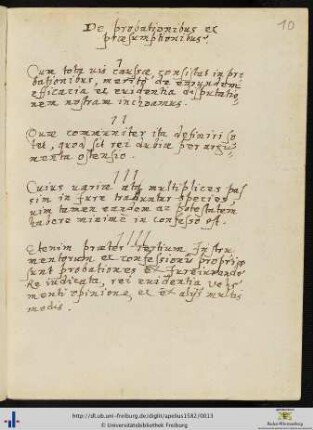 De probationibus et
præsumptionibus.
10
I
Cum tota vis causæ, consistat in pro
bationibus, merito de earundem
efficacia et evidentia disputatio,
nem nostram inchoamus.
II
Quæ communiter ita definiri so
let, quod sit rei dubiæ per argu
menta ostensio.
III
Cuius variæ atq multiplices pas
sim in jure traduntur species,
vim tamen eandem ac potestatem
habere minimè in confesso est.
IIII
Etenim præter testium, Instru
mentorum et confessionum propriæ
sunt probationes Ex Jureiurando
Re iudicata, rei evidentia
menti opinione, et ex alijs multis
modis.
http://dl.ub.uni-freiburg.de/diglit/apelius1582/0013
© Universitätsbibliothek Freiburg
Baden-Württemberg